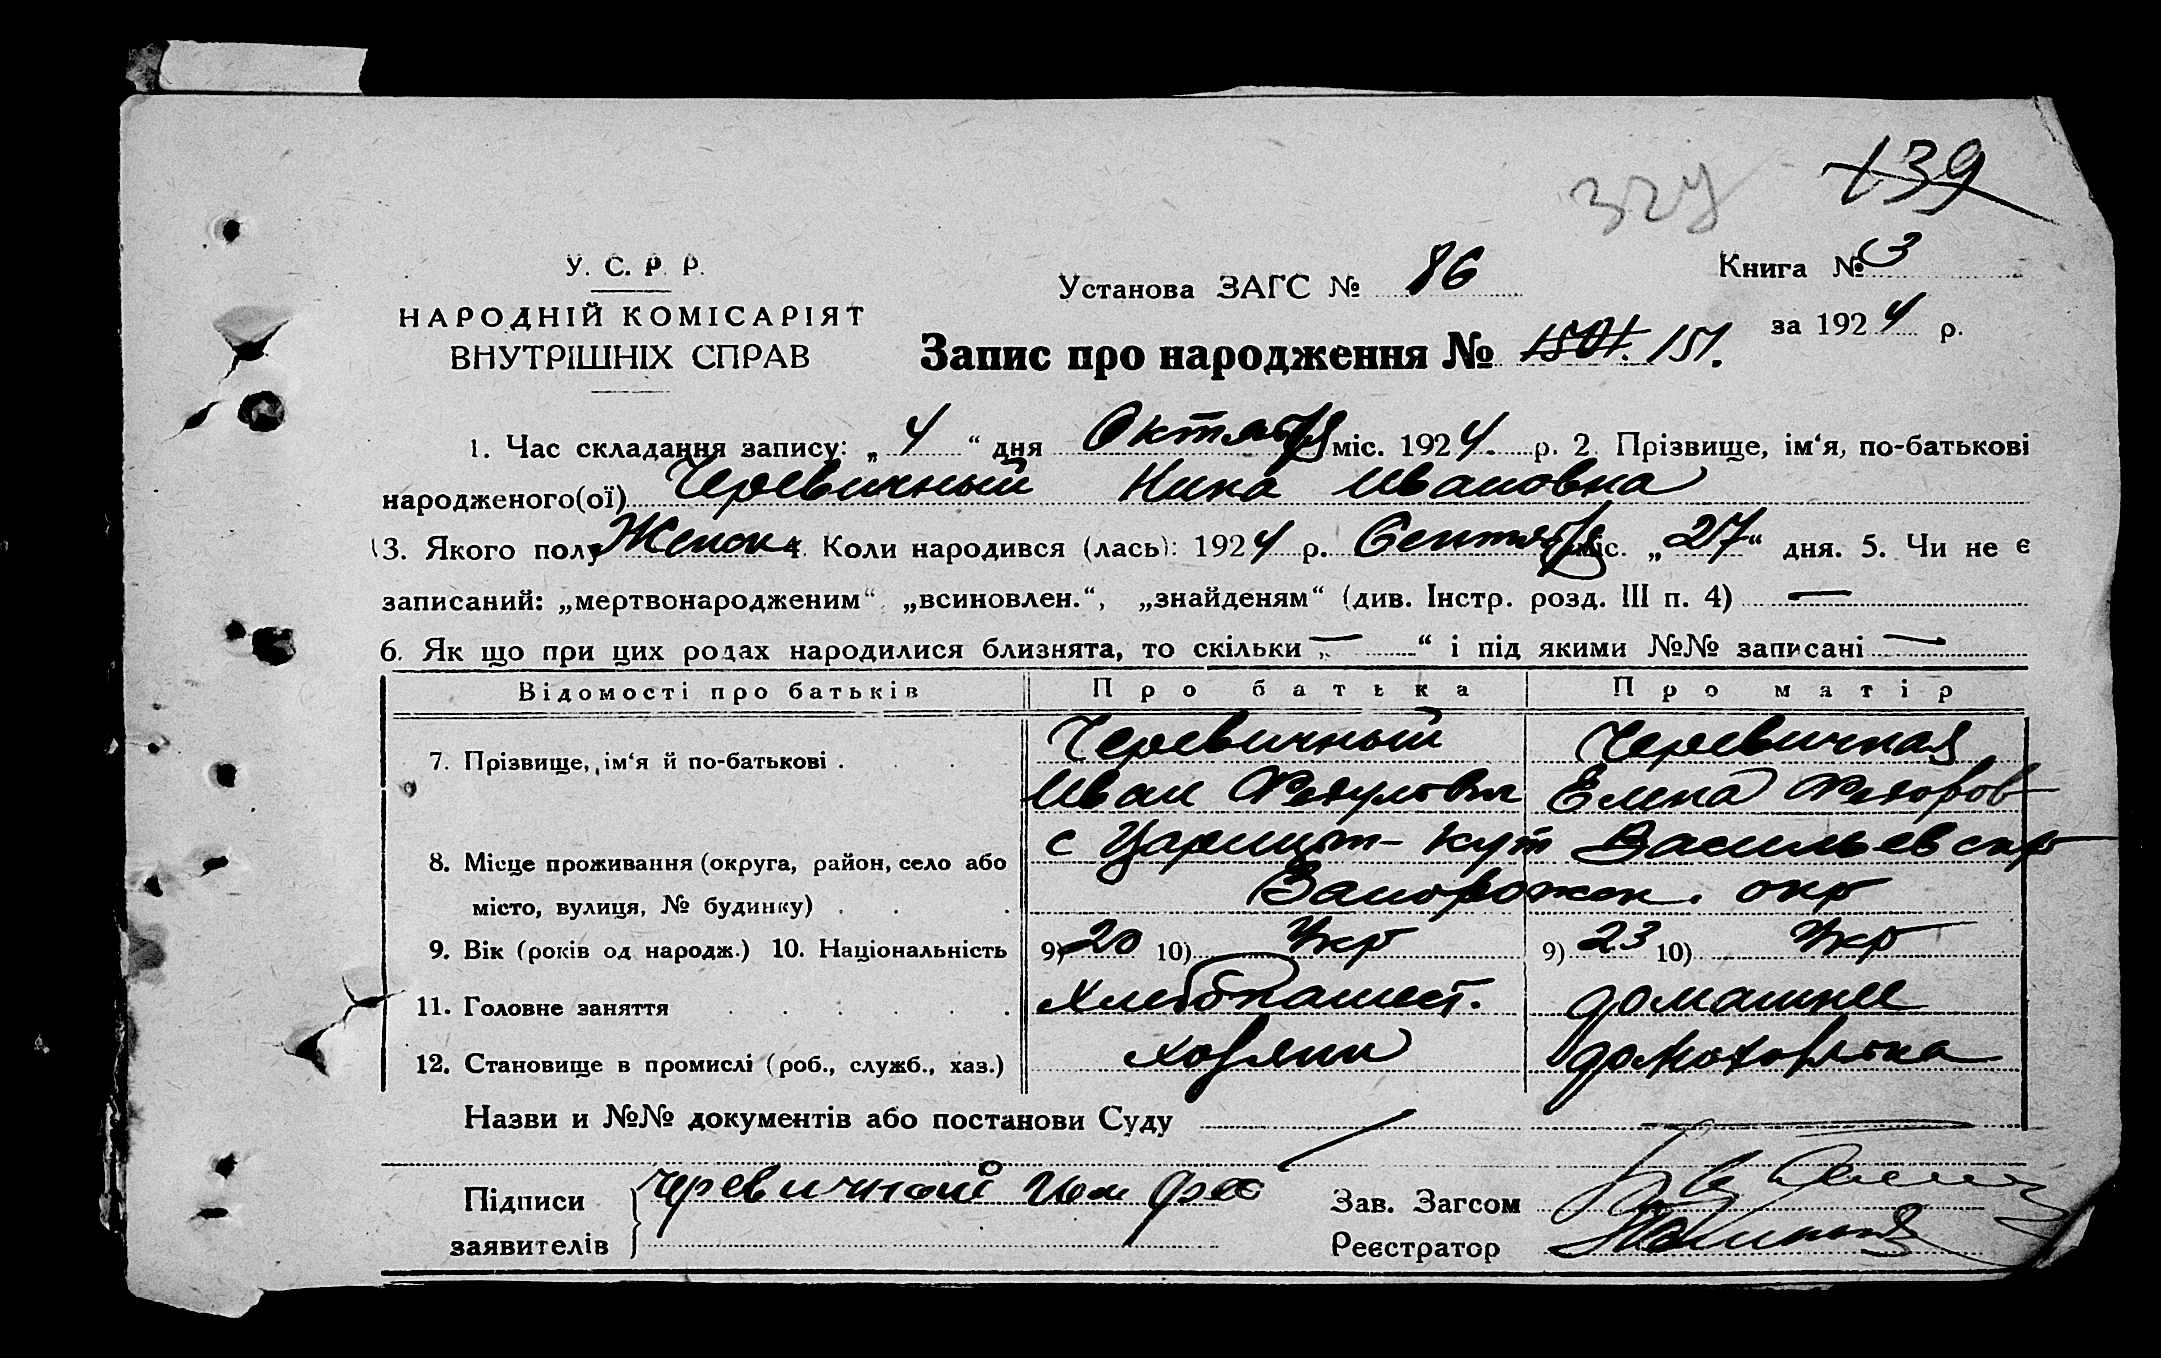 139
У. С. Р. Р.
НАРОДНІЙ КОМІСАРІЯТ
ВНУТРІШНІХ СПРАВ
Установа ЗАГС № 86
Книга № 3
за 1924 р.
Запис про народження № 1501. 151.
1. Час складання запису: „4“ дня Октября міс. 1924. р. 2. Прізвище, ім‘я, по-батькові
народженого(ої) Черевичный Нина Ивановна
3. Якого полу Женск 4. Коли народився (лась): 1924 р. Сентября міс. „27“ дня. 5. Чи не є
записаний: „мертвонародженим“, „всиновлен.“, „знайденям“ (див. Інстр. розд. III п. 4) —
6. Як що при цих родах народилися близнята, то скільки „—“ і під якими №№ записані —
Відомості про батьків Про батька Про матір
7. Прізвище, ім‘я й по-батькові . Черевичный Черевичная
Иван Елена Федоров
8. Місце проживання (округа, район, село або с Царицын-Кут Васильевск р
місто, вулиця, № будинку) Запорожск. окр
9. Вік (років од народж.) 10. Національність 9) 20 10) Укр 9) 23 10) Укр
11. Головне заняття Хлебопашест. домашнее
12. Становище в промислі (роб., служб., хаз.) хозяин домохозяйка
Назви и №№ документів або постанови Суду
Підписи Черевичний Зав. Загсом
заявителів Реєстратор